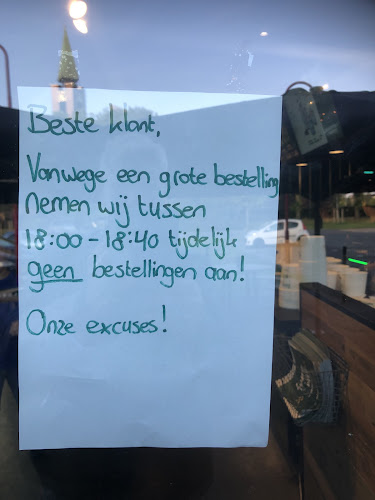 Beste klant,
Vanwege een grote bestelling
nemen wij tussen
18:00 - 18:40 tijdelijk
geen bestellingen aan!
Onze excuses!